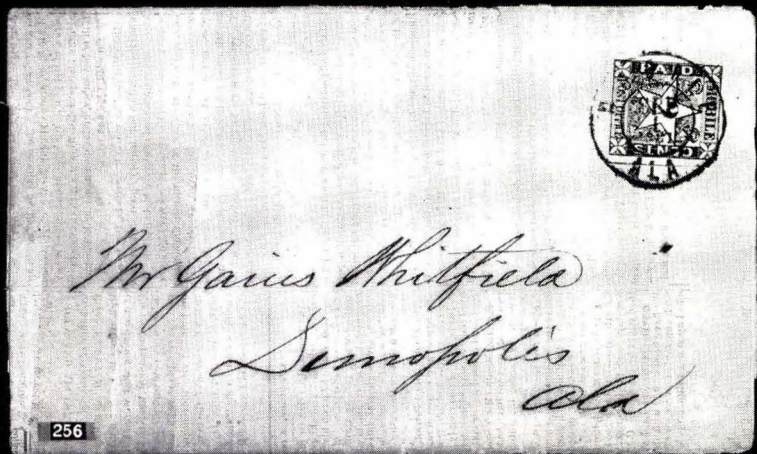 PAID
MOBILE
5
CENTS
ALA
Mr Gaius Whitfield
Demopolis
Ala
256